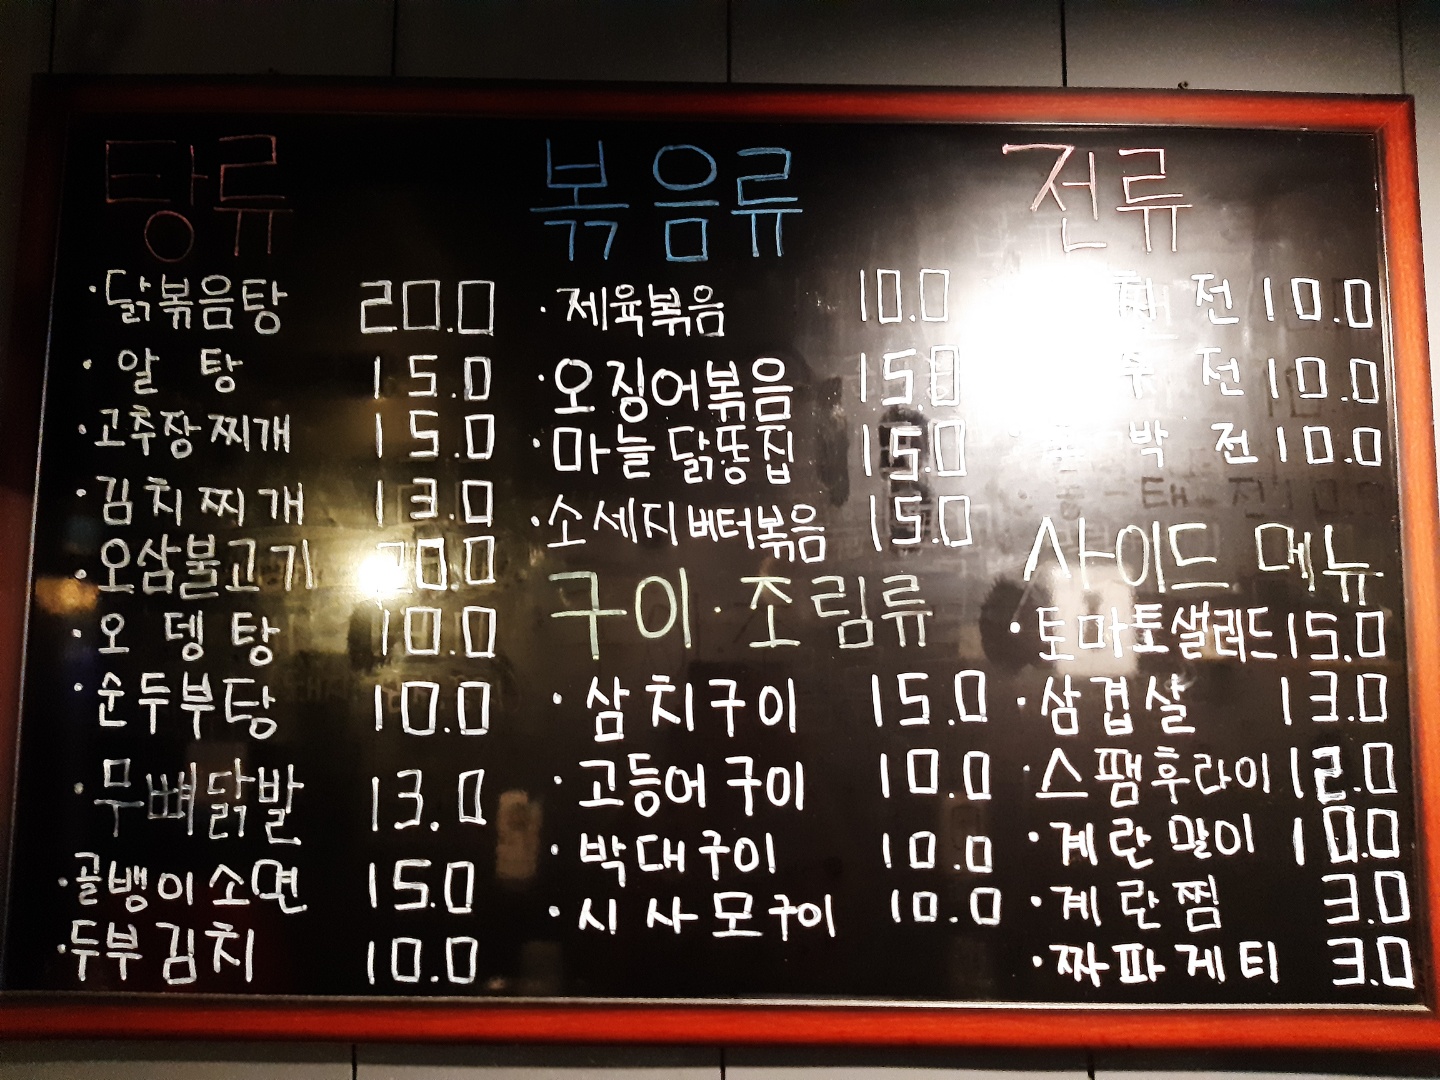 탕류
·닭볶음탕 20.0
·알 탕 15.0
·고추장찌개 15.0
·김치찌개 13.0
·오삼불고기 20.0
·오 뎅 탕 10.0
·순두부탕 10.0
·무뼈닭발 13.0
·골뱅이소면 15.0
·두부김치 10.0
볶음류
·제육볶음 10.0
·오징어볶음 15.0
·마늘닭똥집 15.0
·소세지버터볶음 15.0
구이·조림류
·삼치구이 15.0
·고등어구이 10.0
·박대구이 10.0
·시사모구이 10.0
전류
전 10.0
전 10.0
박 전 10.0
사이드 메뉴
·토마토샐러드 15.0
·삼겹살 13.0
·스팸후라이 12.0
·계란말이 10.0
·계란찜 3.0
·짜파게티 3.0